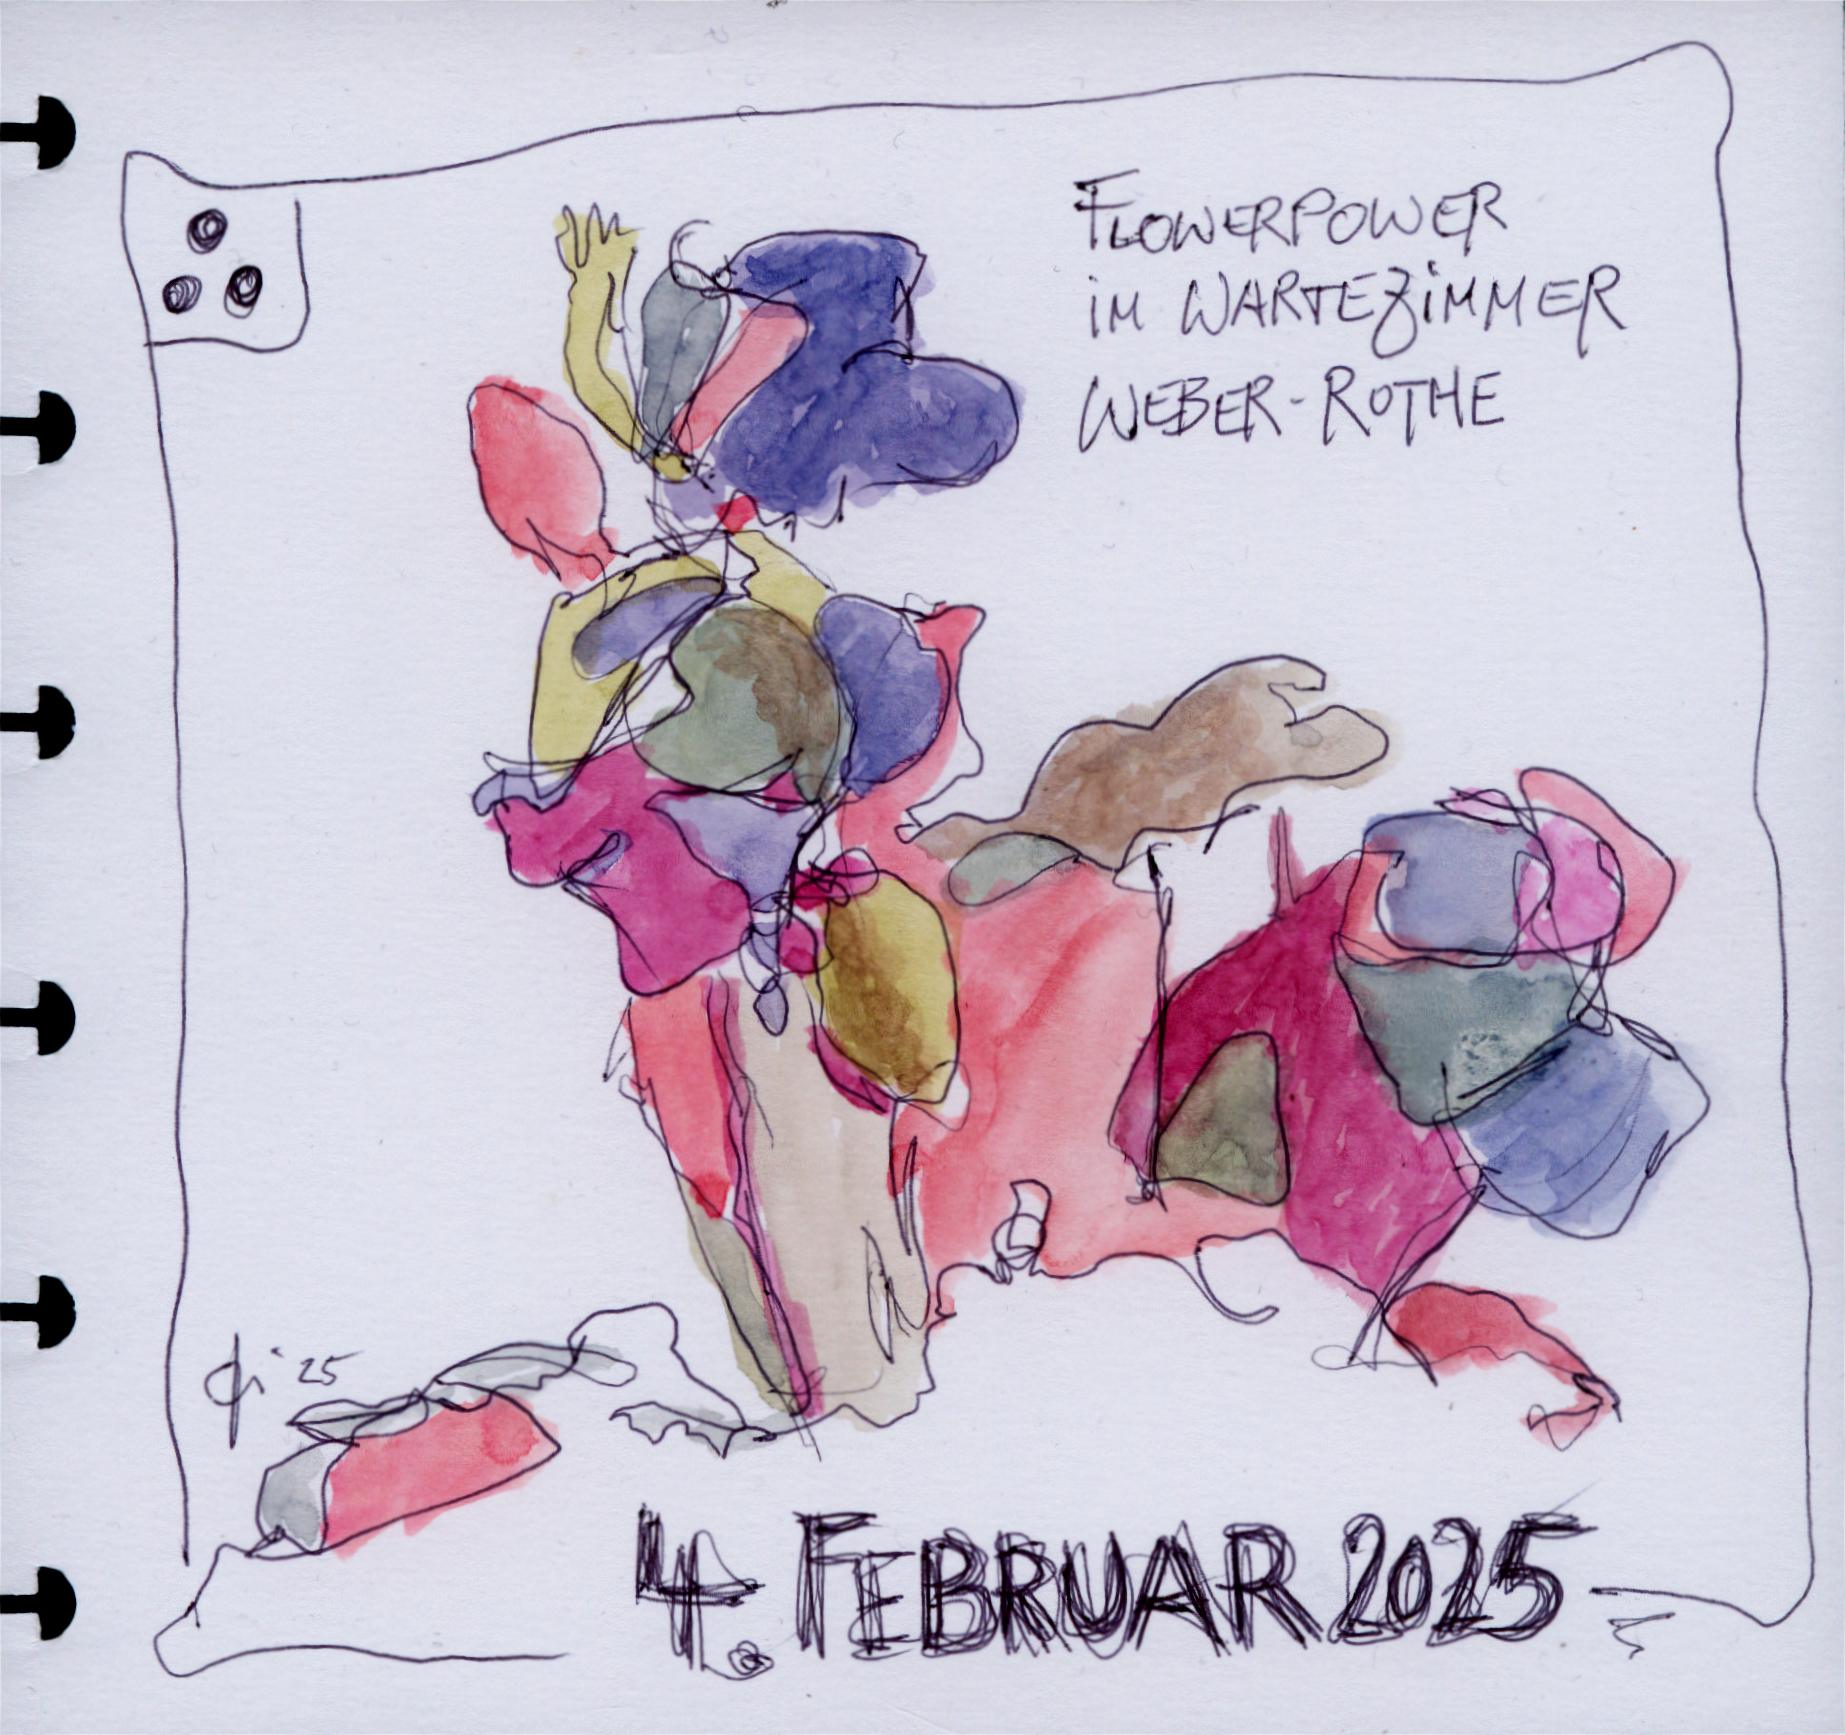 FLOWERPOWER
iM WARTEZiMMER
WEBER-ROTHE
25
4. FEBRUAR 2025